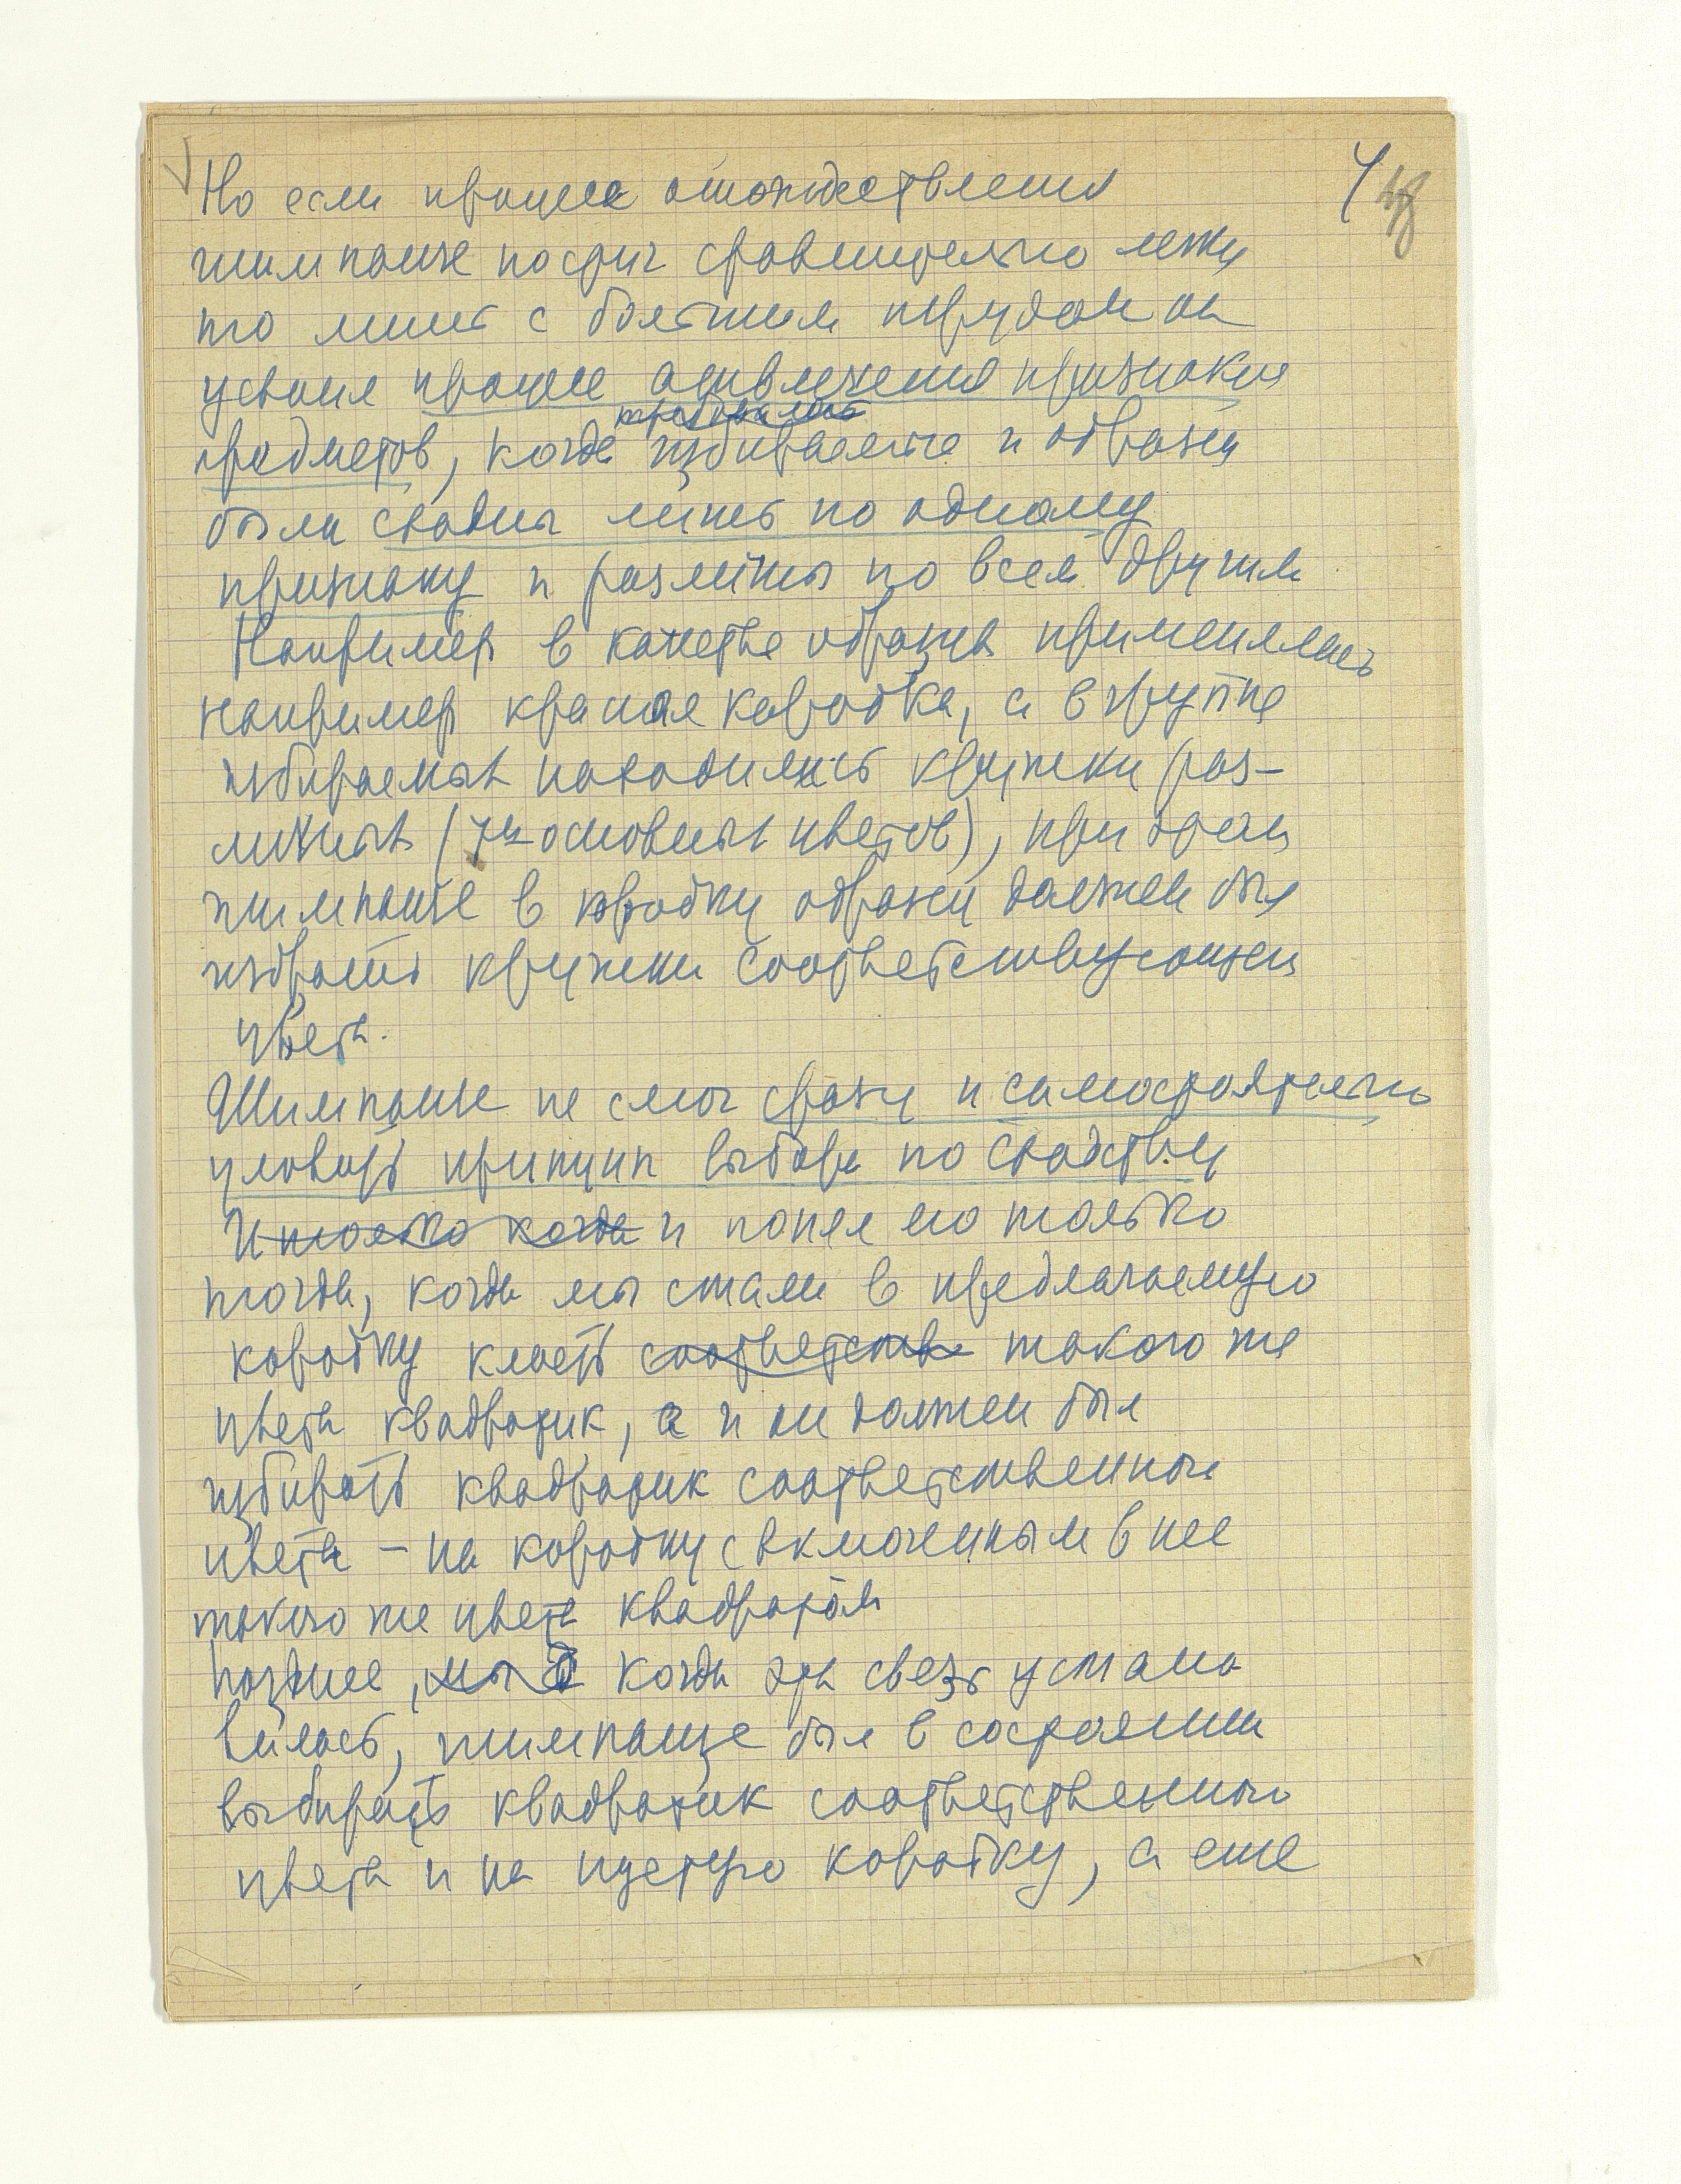 Но если процесс отождествления
шимпанзе постиг сравнительно легко
то лишь с большим трудом он
усвоил процесс отвлечения признаков
предметов, когда избираемые и образец
были сходны лишь по одному
признаку и различны по всем другим
Например в качестве образца применялась
например красная коробка, а в группе
избираемых находились кружки раз-
личных (7ми основных цветов), при этом
шимпанзе в коробку образец должен был
избрать кружки соответствующего
цвета.
Шимпанзе не смог сразу и самостоятельно
уловить принцип выбора по сходству
И только когда и понял его только
тогда, когда мы стали в предлагаемую
коробку класть соответств такого же
цвета квадратик, а и он должен был
избирать квадратик соответственного
цвета – на коробку с включенным в нее
такого же цвета квадратом
Позднее, мы когда эта связь устано
вилась, шимпанзе был в состоянии
выбирать квадратик соответственного
цвета и на пустую коробку, а еще